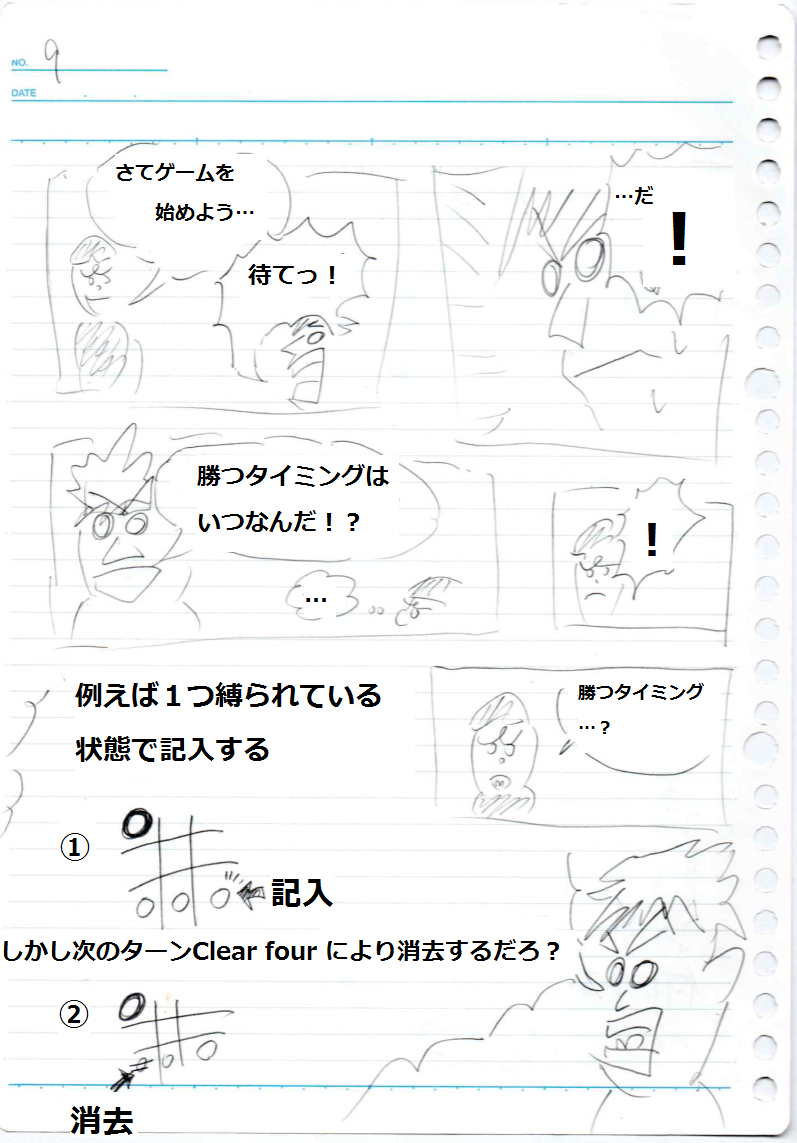 NO. 9
DATE
…だ
！
さてゲームを
始めよう…
待てっ！
勝つタイミングは
いつなんだ！？
…
！
勝つタイミング
…？
例えば１つ縛られている
状態で記入する
①
記入
しかし次のターンClear four により消去するだろ？
②
消去